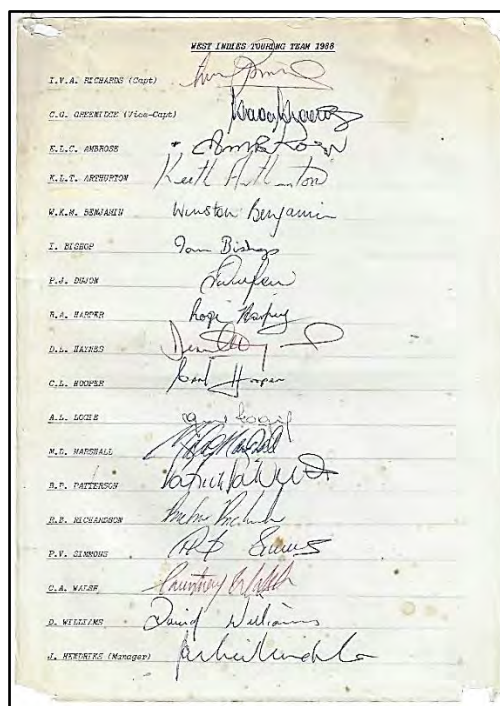 WEST INDIES TOURING TEAM 1988
I.V.A. RICHARDS (Capt)
C.G. GREENIDGE (Vice-Capt)
E.L.C. AMBROSE
K.L.T. ARTHURTON Keith Arthurton
W.K.M. BENJAMIN Winston Benjamin
I. BISHOP Ian Bishop
P.J. DUJON
R.A. HARPER Roger Harper
D.L. HAYNES
C.L. HOOPER Carl Hooper
A.L. LOGIE
M.D. MARSHALL
B.P. PATTERSON
R.B. RICHARDSON
P.V. SIMMONS
C.A. WALSH Courtney Walsh
D. WILLIAMS David Williams
J. HENDRIKS (Manager)